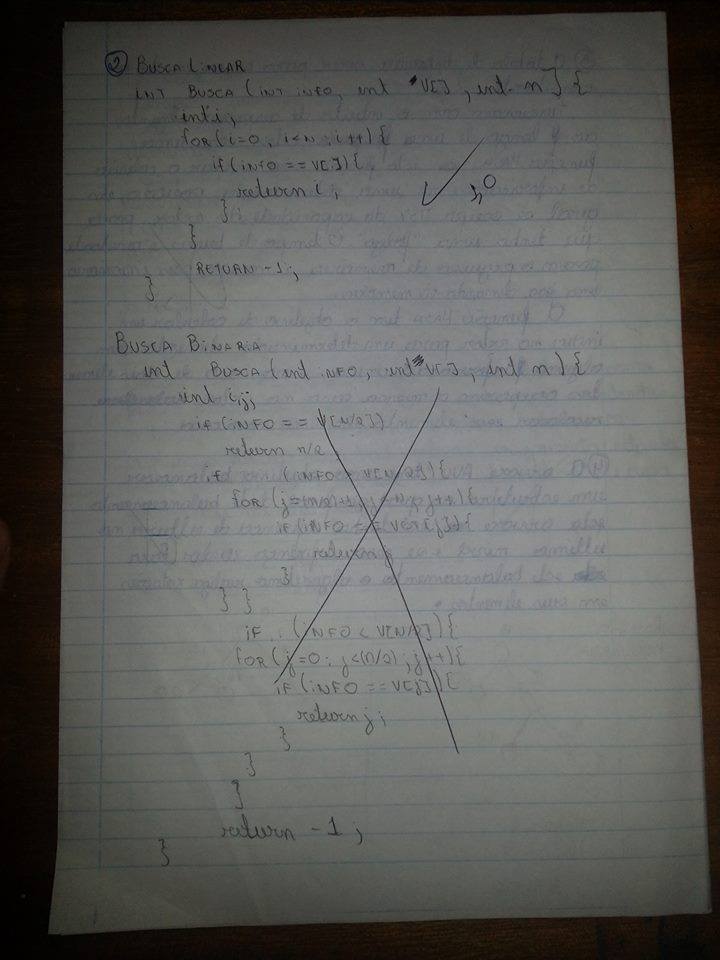 2 BUSCA LINEAR
INT BUSCA (INT INFO, int *V[], int n) {
int i;
FOR(i=0, i<N; i++){
if(INFO == V[i]){
return i;
}
}
RETURN -1;
}
1,0
BUSCA BINARIA
int BUSCA (int INFO, int V[], int n) {
int i,j;
if (INFO == V[N/2])
return n/2;
if (INFO > V[N/2]){
FOR(j=(n/2)+1; j<N; j++){
if(INFO ==
return j;
}
} }
IF (INFO < V[N/2]){
FOR(j=0; j<(n/2); j++){
IF (INFO == V[j]){
return j;
}
}
}
return -1;
}